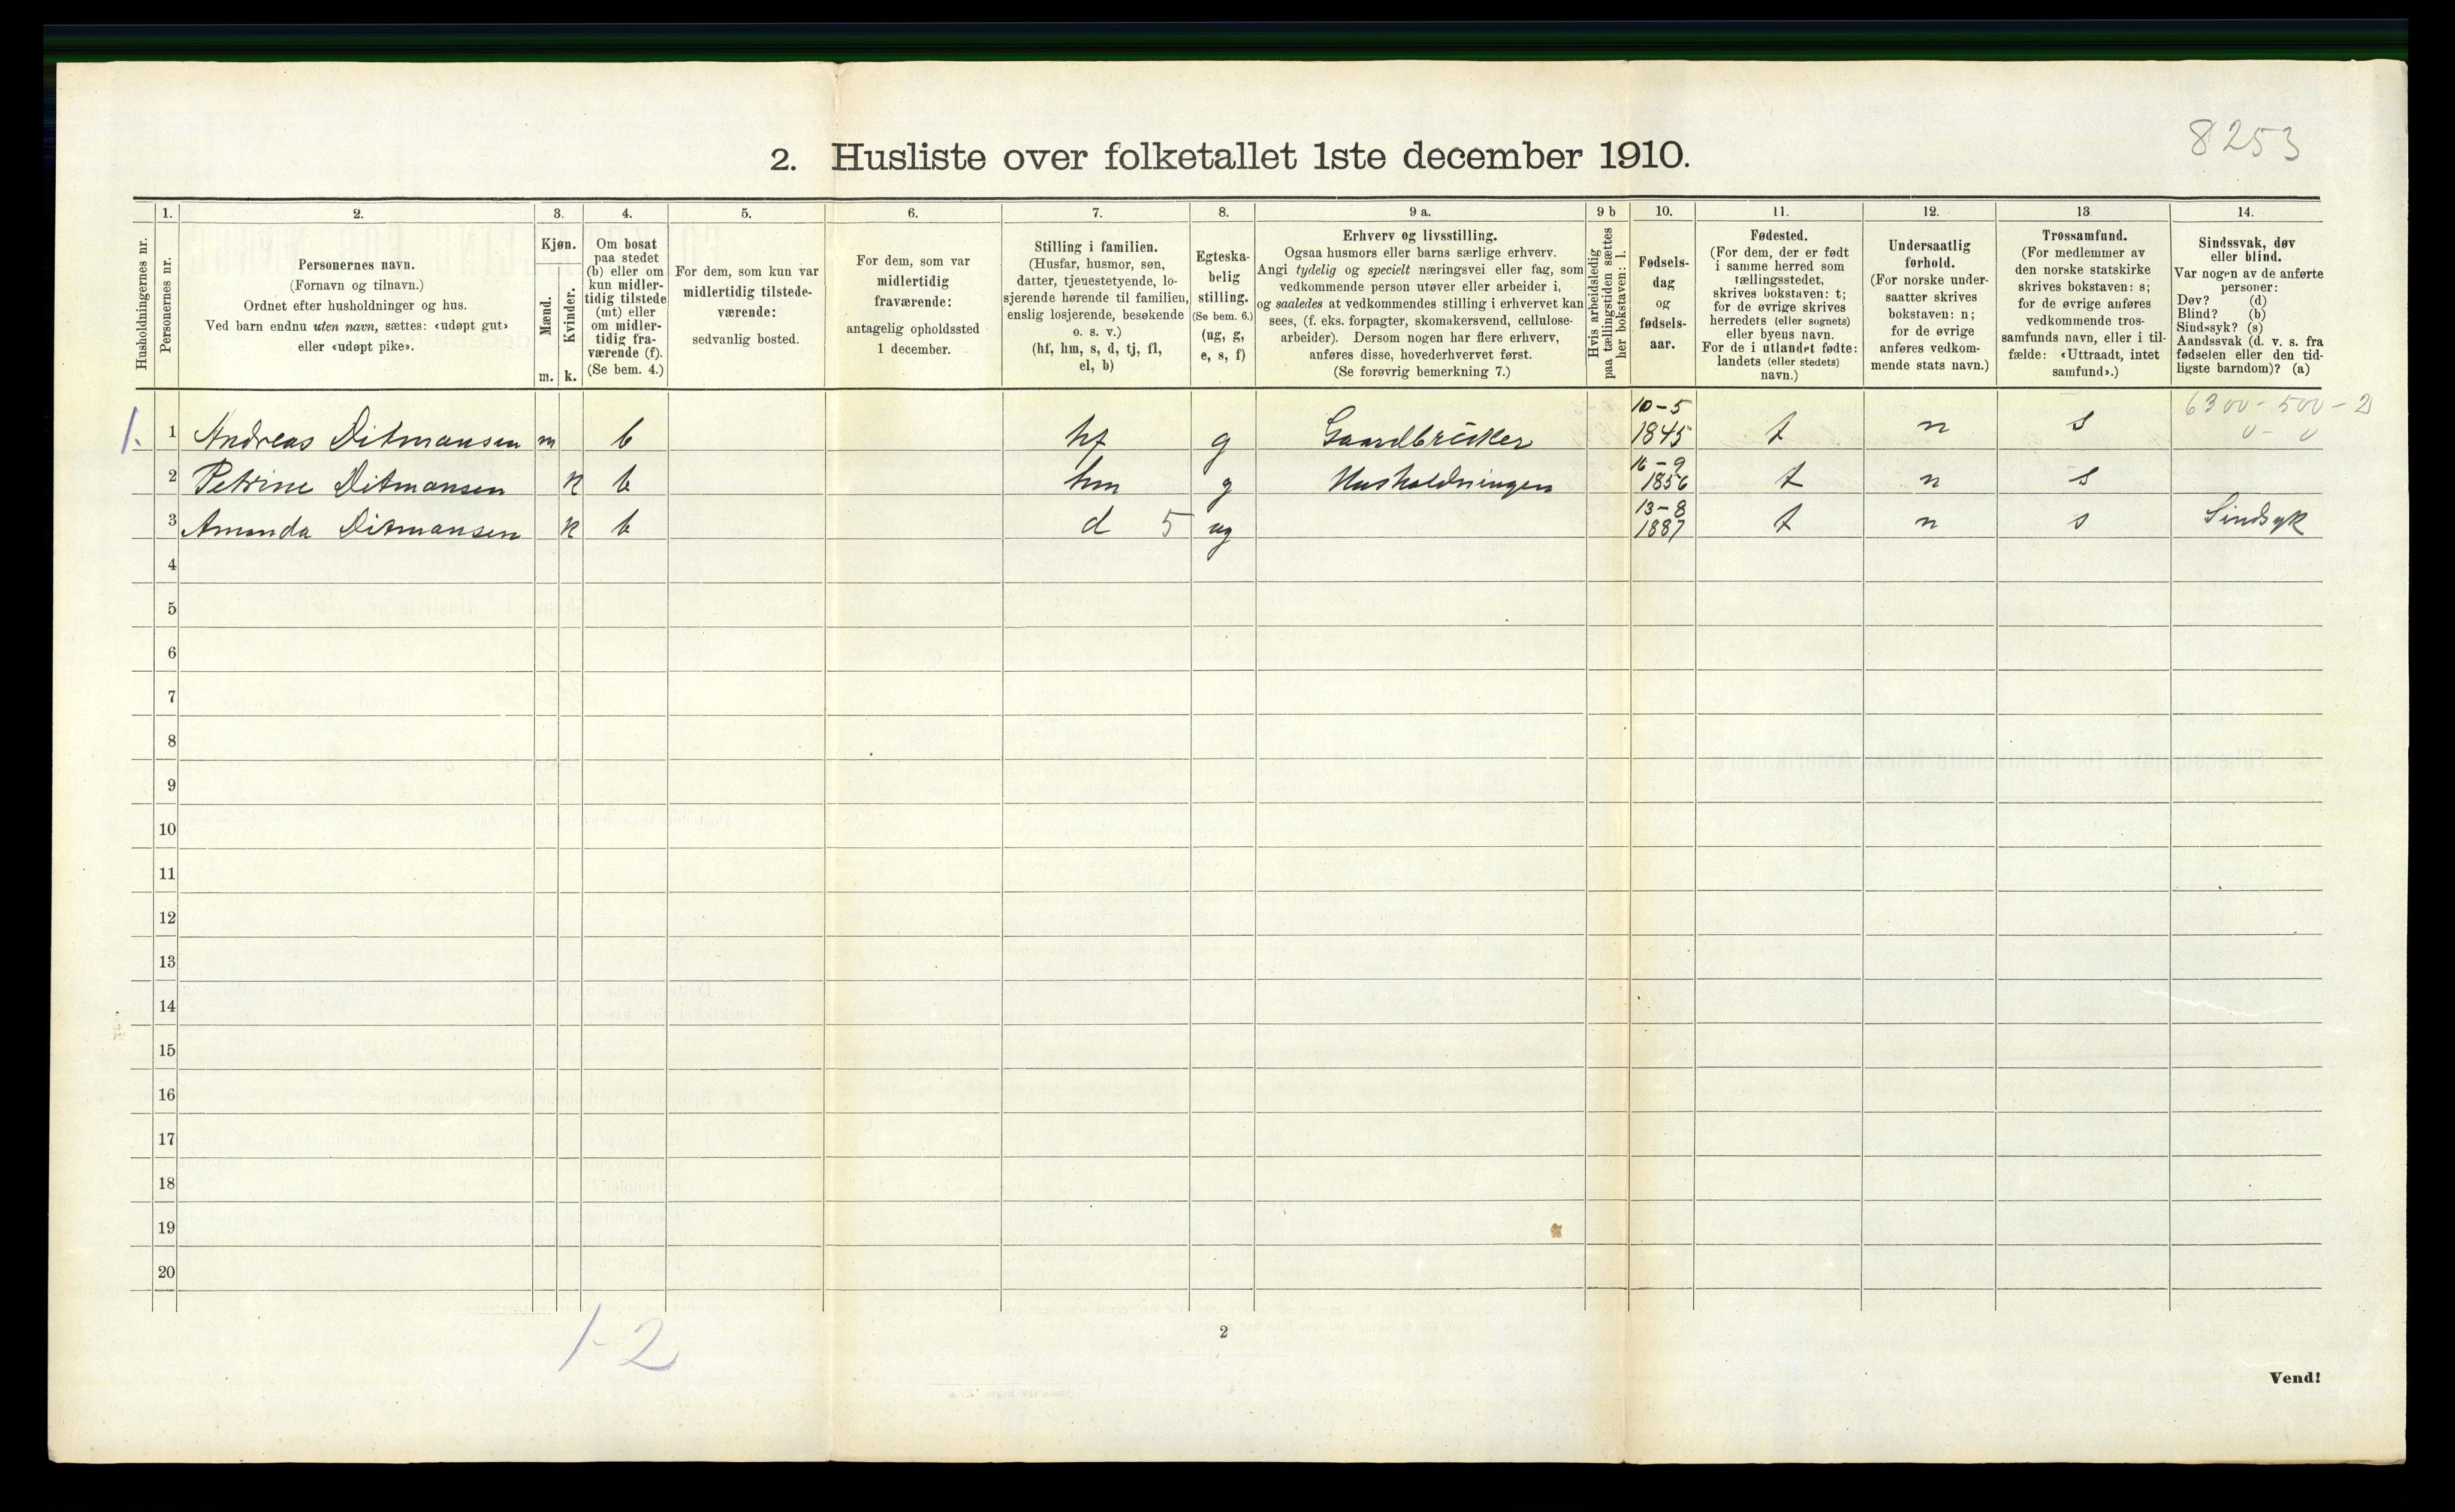 8253
2. Husliste over folketallet 1ste december 1910.
Husholdningernes nr.
1.
Personernes nr.
2.
Personernes navn.
(Fornavn og tilnavn.)
Ordnet efter husholdninger og hus.
Ved barn endnu uten navn, sættes: «udøpt gut»
eller «udøpt pike».
3.
Kjøn.
Mænd.
Kvinder.
m. k.
4.
Om bosat
paa stedet
(b) eller om
kun midler-
tidig tilstede
(mt) eller
om midler-
tidig fra-
værende (f).
(Se bem. 4.)
5.
For dem, som kun var
midlertidig tilstede-
værende:
sedvanlig bosted.
6.
For dem, som var
midlertidig
fraværende:
antagelig opholdssted
1 december.
7.
Stilling i familien.
(Husfar, husmor, søn,
datter, tjenestetyende, lo-
sjerende hørende til familien,
enslig losjerende, besøkende
o. s. v.)
(hf, hm, s, d, tj, fl,
el, b)
8.
Egteska-
belig
stilling.
(Se bem. 6.)
(ug, g,
e, s, f)
9 a.
Erhverv og livsstilling.
Ogsaa husmors eller barns særlige erhverv.
Angi tydelig og specielt næringsvei eller fag, som
vedkommende person utøver eller arbeider i,
og saaledes at vedkommendes stilling i erhvervet kan
sees, (f. eks. forpagter, skomakersvend, cellulose-
arbeider). Dersom nogen har flere erhverv,
anføres disse, hovederhvervet først.
(Se forøvrig bemerkning 7.)
9 b
Hvis arbeidsledig
paa tællingstiden sættes
her bokstaven: l.
10.
Fødsels-
dag
og
fødsels-
aar.
11.
Fødested.
(For dem, der er født
i samme herred som
tællingsstedet,
skrives bokstaven: t;
for de øvrige skrives
herredets (eller sognets)
eller byens navn.
For de i utlandet fødte:
landets (eller stedets)
navn.)
12.
Undersaatlig
forhold.
(For norske under-
saatter skrives
bokstaven: n;
for de øvrige
anføres vedkom-
mende stats navn.)
13
Trossamfund.
(For medlemmer av
den norske statskirke
skrives bokstaven: s;
for de øvrige anføres
vedkommende tros-
samfunds navn, eller i til-
fælde: «Uttraadt, intet
samfund».)
14.
Sindssvak, døv
eller blind.
Var nogen av de anførte
personer:
Døv? (d)
Blind? (b)
Sindssyk? (s)
Aandssvak (d. v. s. fra
fødselen eller den tid-
ligste barndom)? (a)
6300 - 500 - 2
0 - 0
1. 1 Andreas Ditmansen m b hf g Gaardbruker 10-5 1845 t n s
2 Petrine Ditmansen k b hm g Husholdningen 16-9 1856 t n s
3 Amanda Ditmansen k b d 5 ug 13-8 1887 t n s Sindsyk
4
5
6
7
8
9
10
11
12
13
14
15
16
17
18
19
20
1-2
2
Vend!